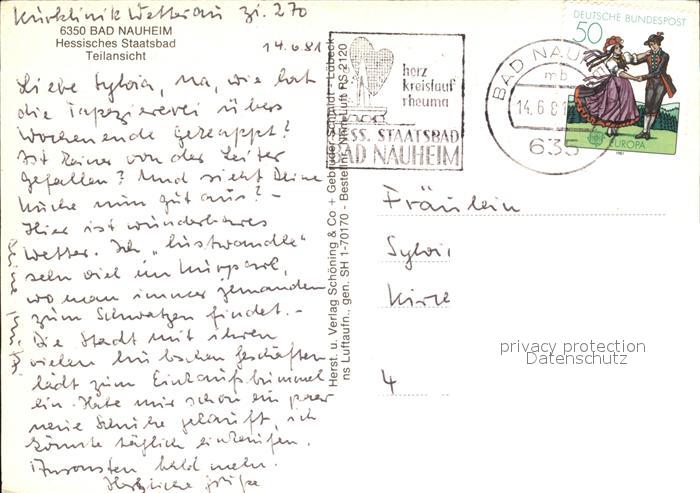 Kurklinik Wetterau Zi. 270
6350 BAD NAUHEIM
Hessisches Staatsbad
Teilansicht
14.6.81
Liebe Sylvia, na, wie hat
die Tapeziererei übers
Wochenende geklappt?
Ist Rainer von der Leiter
gefallen? Und sieht Deine
Küche nun gut aus? -
Hier ist wunderbares
Wetter. Ich "lustwandle"
sehr viel im Kurpark,
wo man immer jemanden
zum Schwatzen findet. -
Die Stadt mit ihren
vielen hübschen Geschäften
lädt zum Einkaufsbummel
ein. Habe mir schon ein paar
neue Schuhe gekauft, ich
könnte täglich einkaufen.
Ansonsten bald mehr.
Herzliche Grüße
Herst. u. Verlag Schöning & Co + Gebrüder Schmidt - Lübeck
ns Luftaufn., gen. SH 1-70170 - Bestellnr. Nhm Luft RS 2120
herz
kreislauf
rheuma
HESS. STAATSBAD
BAD NAUHEIM
BAD NAUHEIM
mb
14.6.81
635
DEUTSCHE BUNDESPOST
50
EUROPA
1981
Fräulein
Sylvi
4
privacy protection
Datenschutz